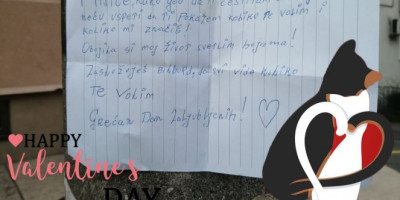 kako god da ti čestitam
neću uspeti da ti pokažem koliko te volim i
koliko mi značiš!
Obojila si moj život svetlim bojama!
Zaslužuješ bilbord, da svi vide koliko
Te Volim
Srećan Dan Zaljubljenih!
HAPPY
Valentine's
DAY